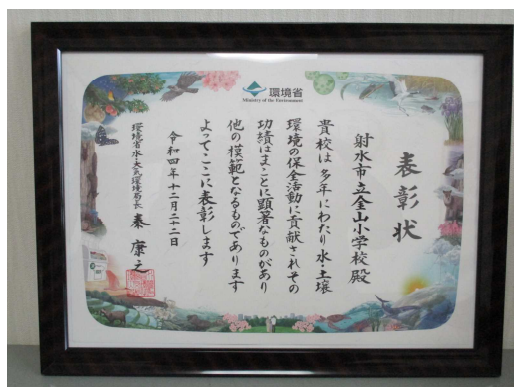 環境省
Ministry of the Environment
表彰状
射水市立金山小学校殿
貴校は多年にわたり水・土壌
環境の保全活動に貢献されその
功績はまことに顕著なものがあり
他の模範となるものであります
よってここに表彰します
令和四年十二月二十二日
環境省水・大気環境局長 秦 康之